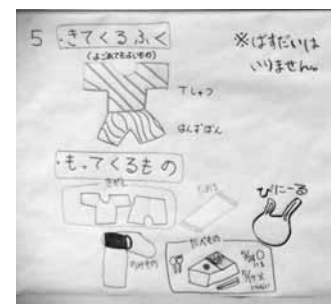 5 ・きてくるふく
(よごれてもよいもの)
※ばすだいは
いりません。
Tしゃつ
はんずぼん
・もってくるもの
きがえ
たおる
びにーる
のみもの
たべもの